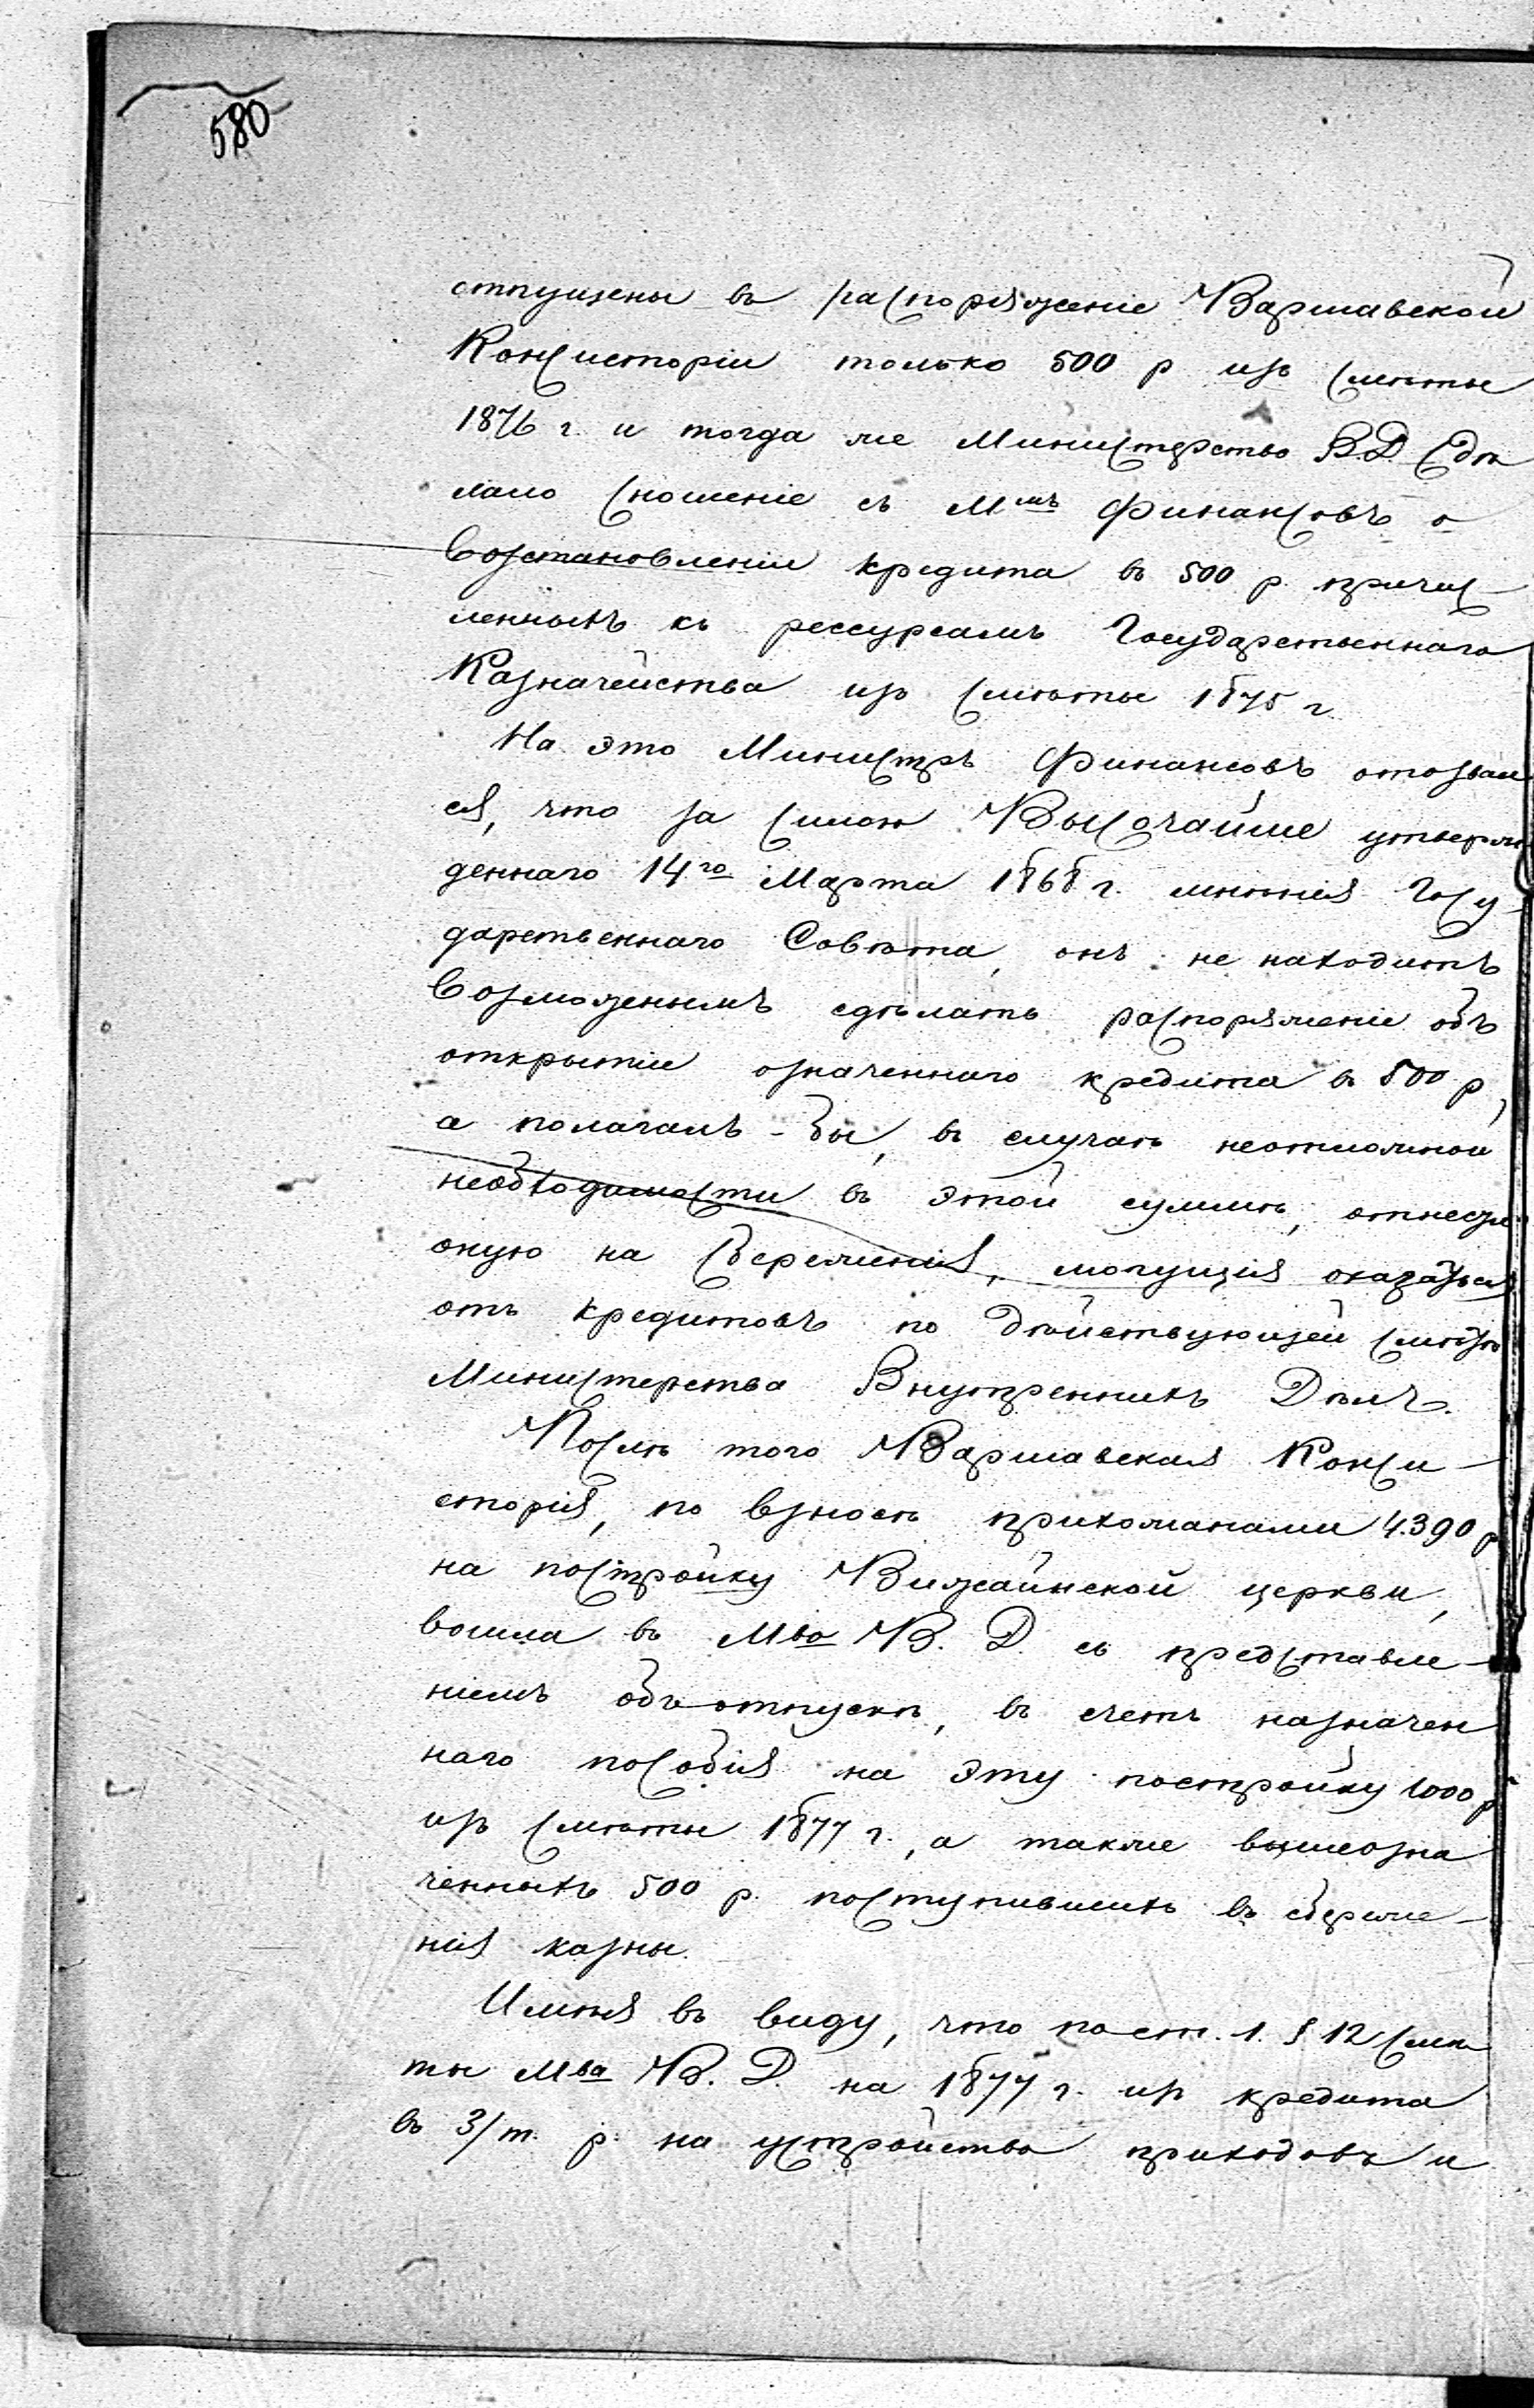 580
отпущены въ распоряженіе Варшавской
Консисторіи только 500 р изъ смѣты
1876 г. и тогда же Министерство В.Д. сдѣ
лало сношеніе съ Ммъ Финансовъ о
возстановленіи кредита въ 500 р. причис-
ленныхъ къ рессурсамъ Государственнаго
Казначейства изъ смѣты 1875 г
На это Министръ Финансовъ отозвал
ся, что за силою Высочайше утверж
деннаго 14го Марта 1868 г. мнѣнія Госу-
дарственнаго Совѣта, онъ не находитъ
возможнымъ сдѣлать распоряженіе объ
открытіи означеннаго кредита въ 500 р,
а полагалъ-бы, въ случаѣ неотложной
необходимости въ этой суммѣ, отнести
оную на сбереженія, могущія оказаться
отъ кредитовъ по дѣйствующей смѣтѣ
Министерства Внутреннихъ Дѣлъ.
Послѣ того Варшавская Конси-
сторія, по взносѣ прихожанами 4.390 р
на постройку Вижайнской церкви,
вошла въ Мво В. Д. съ представле-
ніемъ объ отпускѣ, въ счетъ назначен
наго пособія на эту постройку 1000 р
изъ смѣты 1877 г., а также вышеозна
ченныхъ 500 р. поступившихъ въ сбереже-
нія казны.
Имѣя въ виду, что по ст. 1. § 12 смѣ
ты Мва В. Д. на 1877 г. изъ кредита
въ 3/т. р. на устройство приходовъ и